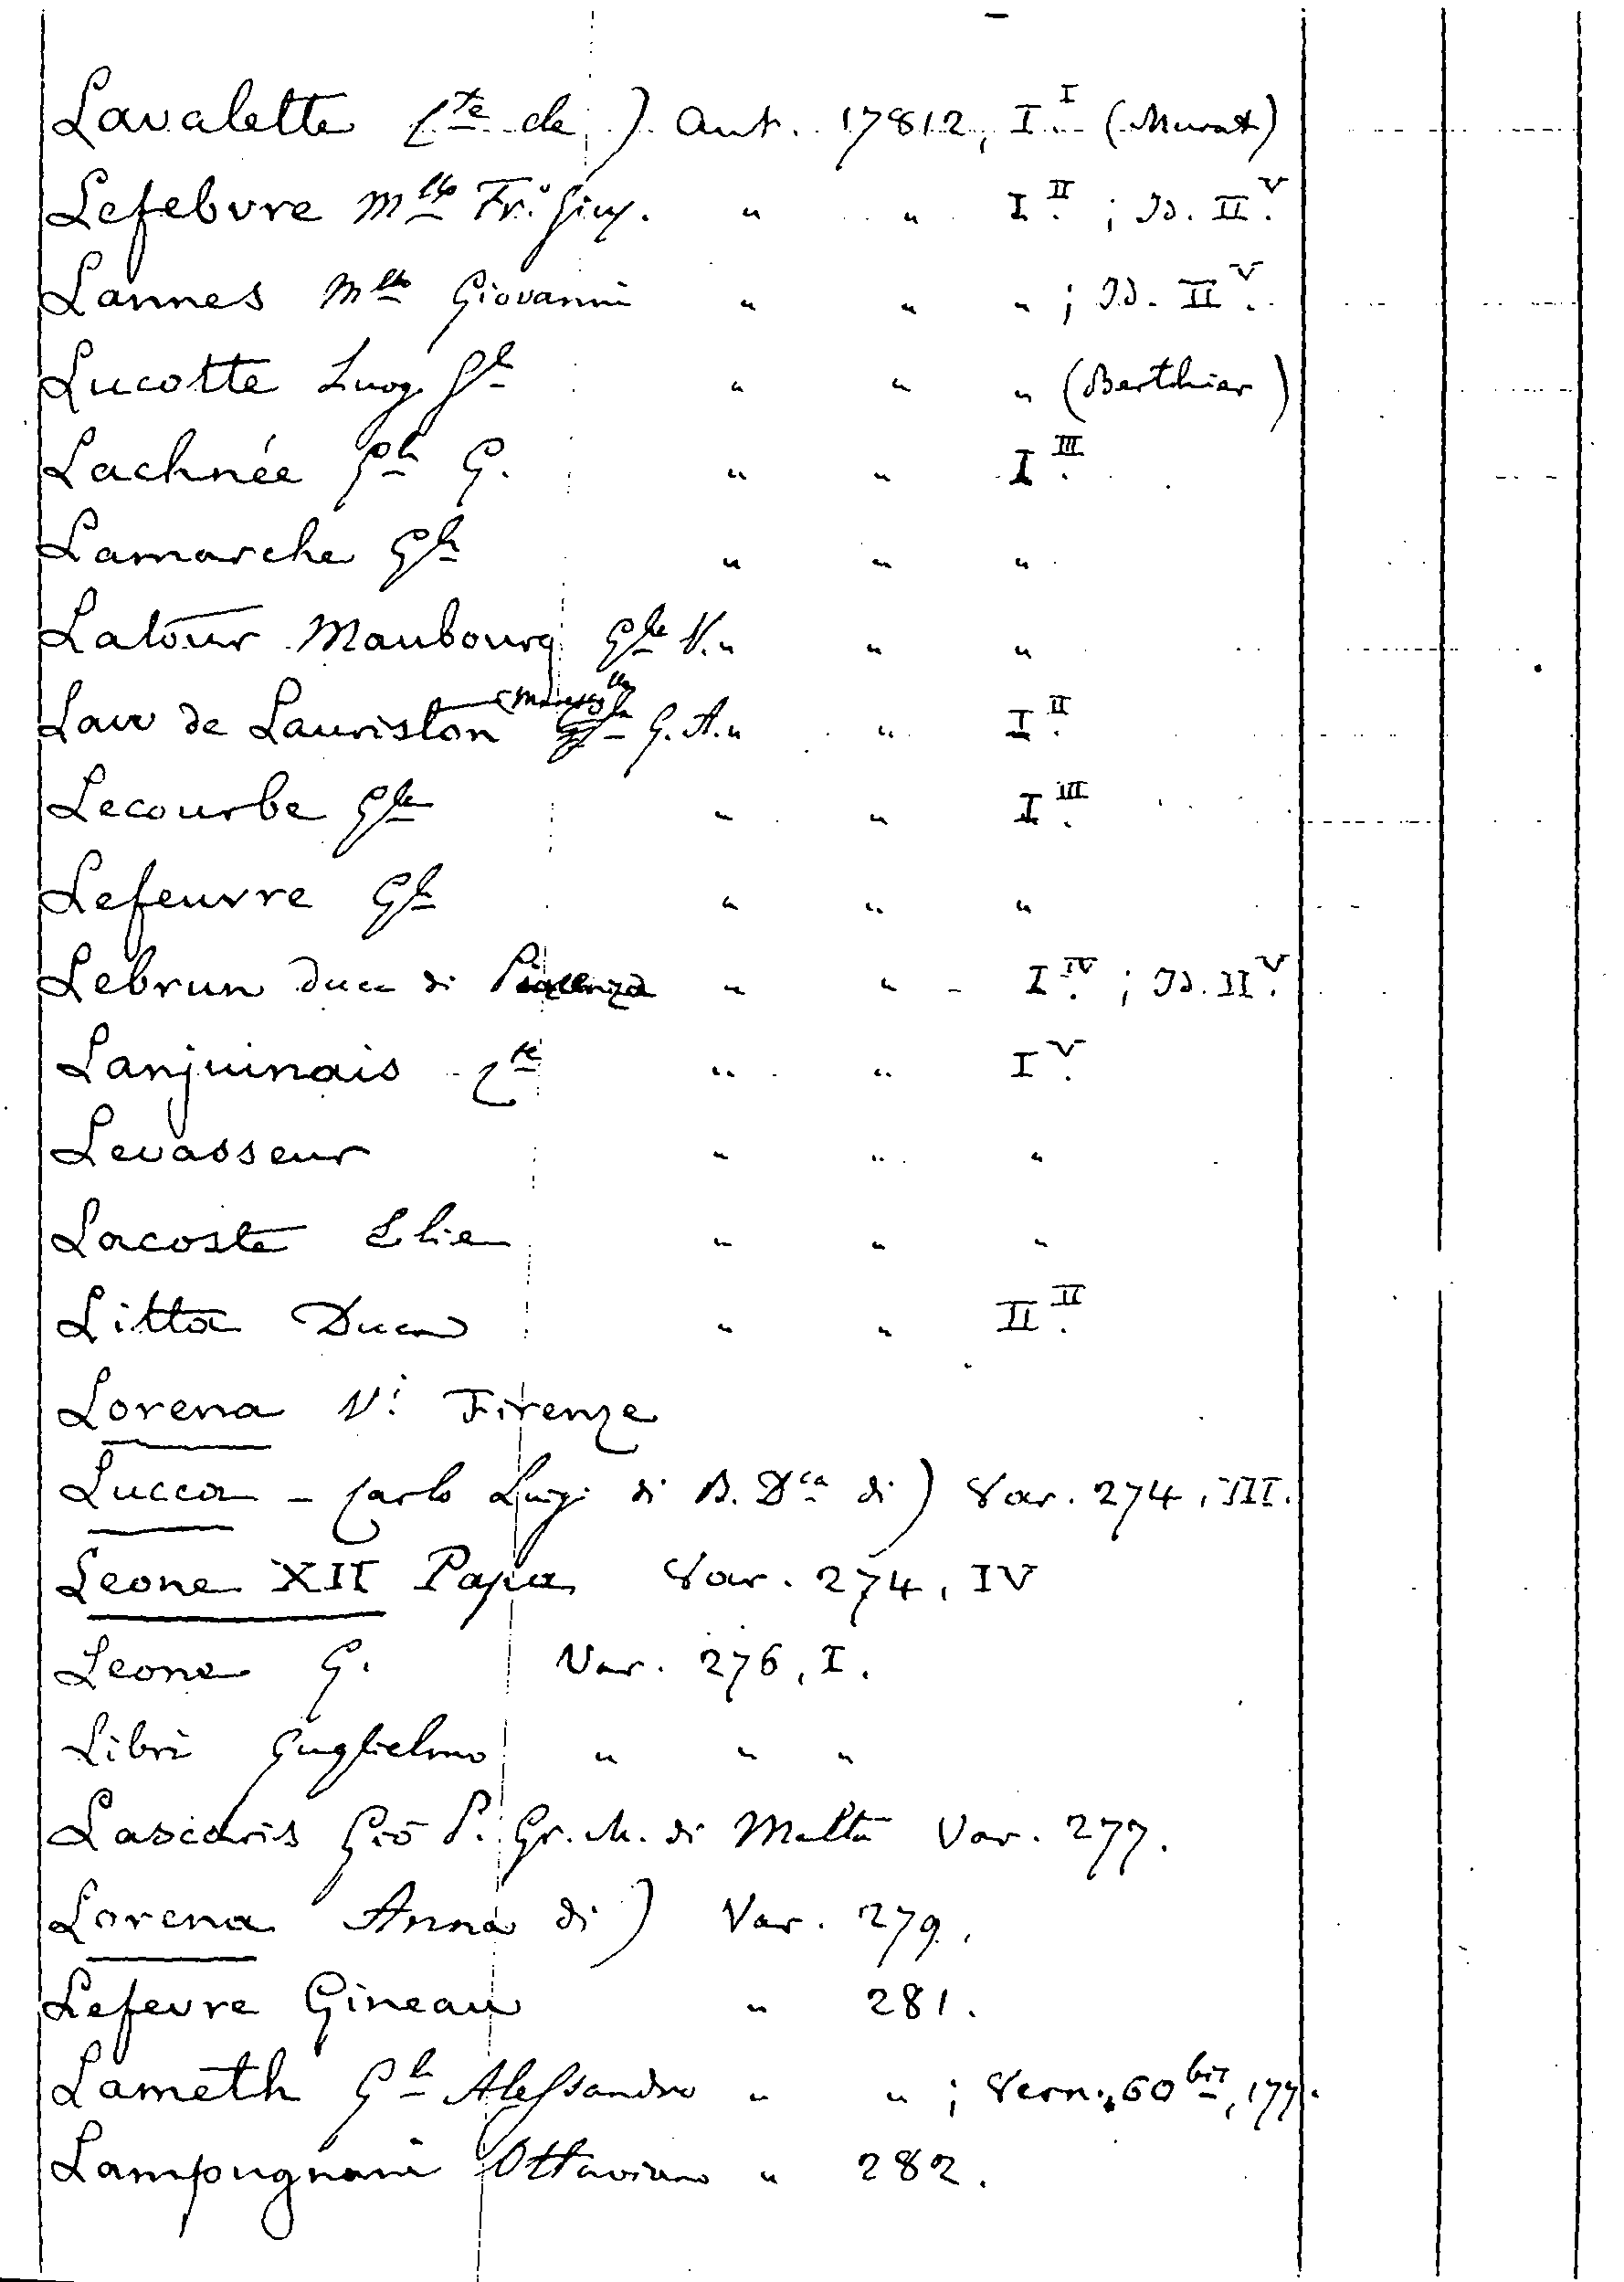 Lavalette Cte de) Aut. 17812, I.I (Murat)
Lefebvre Mllo Fr. Gius. " " I.II ; Id. II.V
Lannes Mllo Giovanni " " " ; Id. II.V
Lucotte Luog. Gle " " " (Berthier)
Lachnée Gle G. " " I.III
Lamarche Gle " " "
Latour Maubourg Gle V. " " "
Law de Lauriston G. A. " " I.II
Lecourbe Gle " " I.III
Lefeuvre Gle " " "
Lebrun Duca di Piacenza " " I.IV ; Id. II.V
Lanjuinais Cte " " I.V
Levasseur " " "
Lacoste Elie " " "
Litta Duca " " II.II
Lorena V. Firenze
Lucca - Carlo Luigi di B. Dca di) Var. 274, III.
Leone XII Papa Var. 274, IV
Leone G. Var. 276, I.
Libri Guglielmo " " "
Lascaris Gio P. Gr. M. di Malta Var. 277.
Lorena Anna di) Var. 279.
Lefevre Gineau " 281.
Lameth Gle Alessandro " " ; Vern. 60 bis, 177.
Lampugnani Ottaviano " 282.